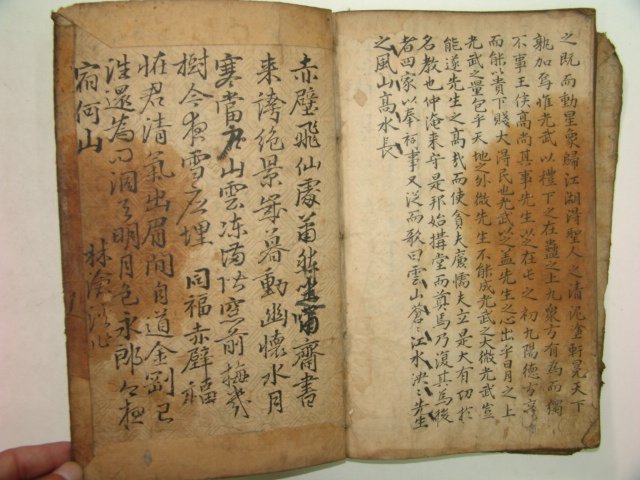 之既而動星象歸江湖淂聖人之清泥塗軒冕天下
孰加焉惟光武以禮下之在蠱之上九衆方有爲而獨
不事王侯高尚其事先生以之在屯之初九陽德方亨
而能以貴下賤大淂民也光武以之盖先生之心出乎日月之上
光武之量包乎天地之外微先生不能成光武之大微光武豈
能遂先生之高哉而使貪夫廉懦夫立是大有功於
名教也仲淹来守是邦始搆堂而奠焉乃復其爲後
者四家以奉祠事又從而歌曰雲山蒼〻江水洪〻先生
之風山高水長
赤壁飛仙處 齋書
来誇絶景歲暮動幽懷水月
寒當戶山雲凍滿階窓前梅幾
樹今夜雪應埋 同福赤壁福
君清氣出眉間自道金剛已
往還爲問洞天明月色永郎今夜
宿何山
林滄